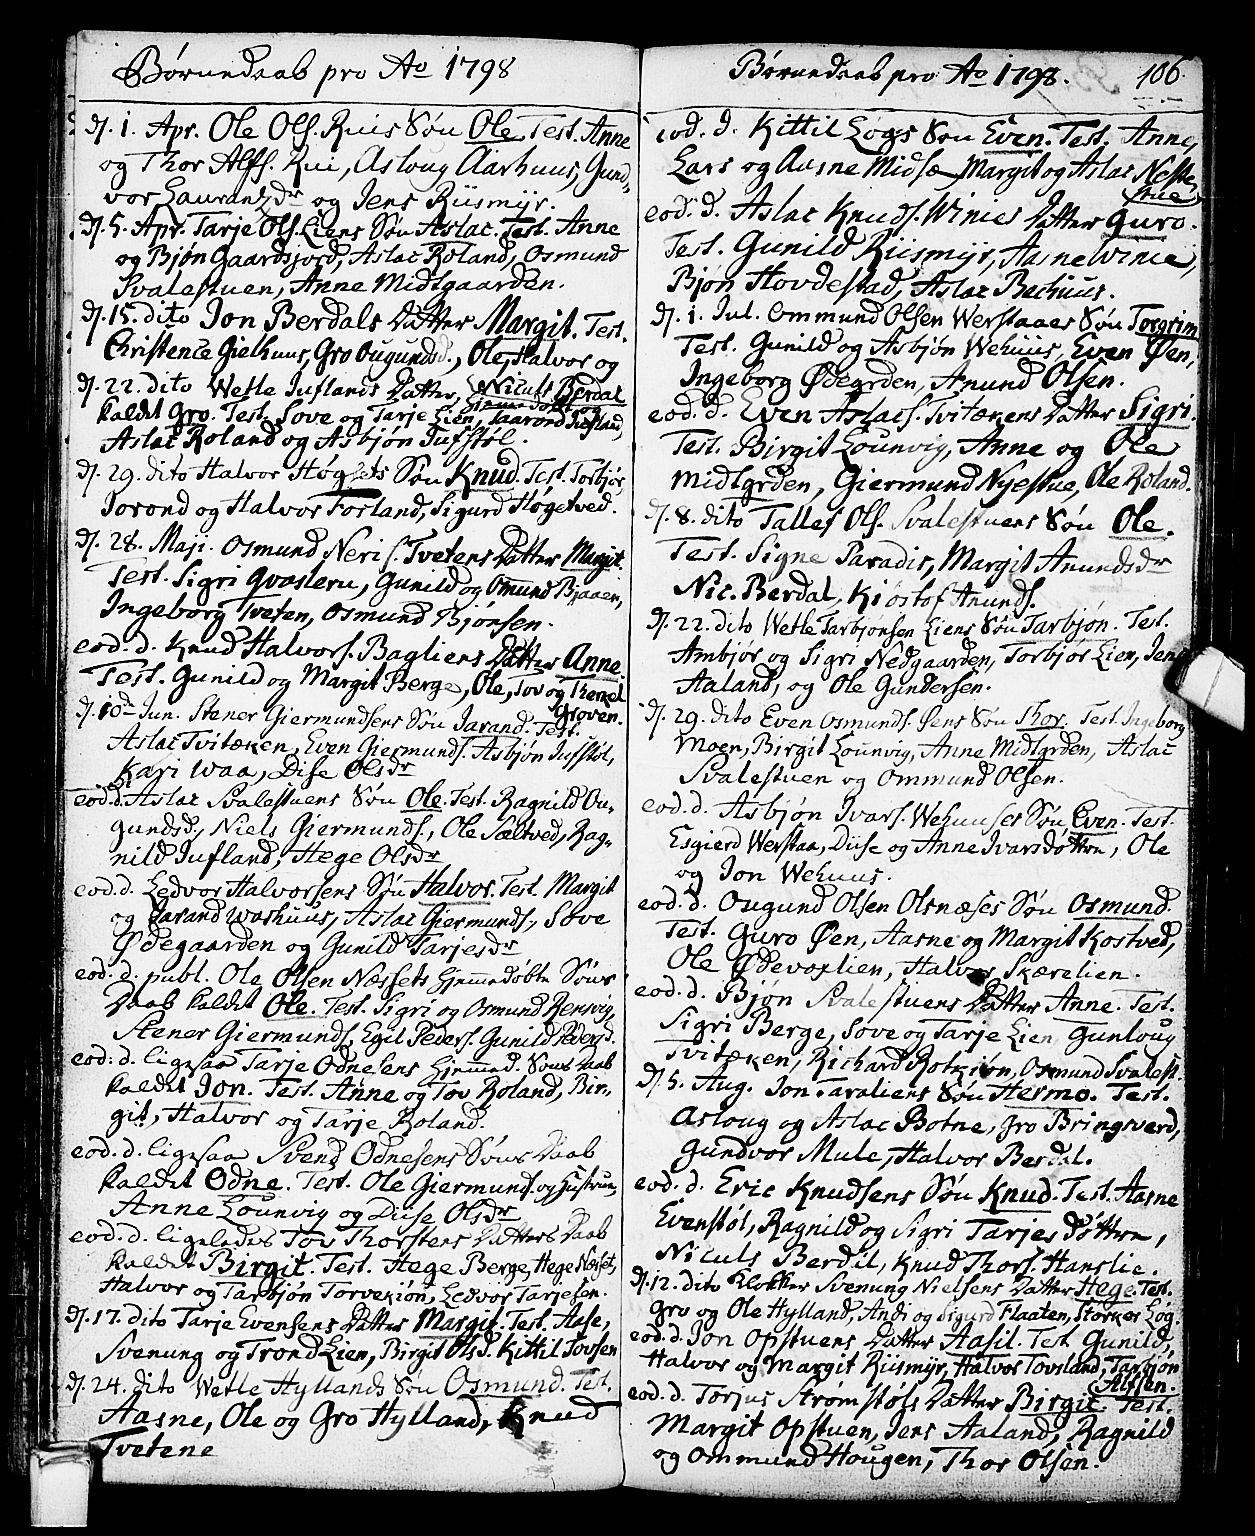 Børnedaab pro Ao 1798
dj. 1. Apr. Ole Ols. Ruis Søn Ole. Test. Anne
og Thor Alfs. Rui, Asloug Aarhuus, Gund-
vor Lauranzdr og Jens Riismyr.
dj. 5. Apr. Tarje Ols. Liens Søn Aslac. Test. Anne
og Bjøn Gaardsjord, Aslac Roland, Osmund
Svalestuen, Anne Midtgaarden.
dj. 15. dito Jon Berdals Datter Margit. Test.
Christence Gielhuus, Gro Ougundsd., Ole, Halvor og
Niculs Berdal
dj. 22. dito Wetle Juflands Datter, hjemedøbt
kaldet Gro. Test. Sove og Tarje Lien, Taarond Jufland,
Aslac Roland og Asbjøn Jufstøl.
dj. 29. dito Halvor Høgets Søn Knud. Test. Torbjør,
Jorond og Halvor Forland, Sigurd Høgetved.
dj. 28. Maji. Osmund Neris. Tvetens Datter Margit.
Test. Sigri Qvasteru, Gunild og Omund Bjaaen,
Ingeborg Tveten, Osmund Bjønsen.
eod. d. Knud Halvors. Bagliens Datter Anne.
Test. Gunild og Margit Berge, Ole, Tov og Therkel
Groven.
dj. 10de Jun. Stener Giermundsens Søn Jarand. Test.
Aslac Tvitæken, Even Giermunds. Asbjøn Jufstøl,
Kari Waa, Dise Olsdr
eod. d. Aslac Svalestuens Søn Ole. Test. Ragnild Ou-
gundsd., Niels Giermunds., Ole Sæltved, Rag-
nild Jufland, Hege Olsdr
eod. d. Ledvor Halvorsens Søn Halvor. Test. Margit
og Jarand Waahuus, Aslac Giermunds., Sove
Ødegaarden og Gunild Tarjesdr
eod. d. publ. Ole Olsen Næssets Hjemedøbte Søns
Daab kaldet Ole. Test. Sigri og Osmund Rensvig,
Stener Giermunds., Egil Peders. Gunild Pedersd.
eod. d. ligesaa Tarje Odnesens Hjemed. Søns Daab
kaldet Jon. Test. Anne og Tov Roland, Bir-
git, Halvor og Tarje Roland.
eod. d. ligesaa Svend Odnesens Søns Daab
kaldet Odne. Test. Ole Giermunds. og Hustrue,
Anne Lounvig og Diise Olsdr
eod. d. ligeledes Tov Thorstens Datters Daab
kaldet Birgit. Test. Hege Berge, Hege Næset,
Halvor og Tarbjøn Torvekiøn, Ledvor Tarjesen.
dj. 17. dito Tarje Evensens Datter Margit. Test. Aase,
Svenung og Trond Lien, Birgit Olsd. Kittil Tovsen
dj. 24. dito Wetle Hyllands Søn Osmund. Test.
Aasne, Ole og Gro Hylland, Knud
Tvetene
Børnedaab pro Ao 1798. 106
eod. d. Kittil Løgs Søn Even. Test. Anne,
Lars og Aasne Midsæ, Margit og Aslac Neste-
stue
eod. d. Aslac Knuds. Winies Datter Guro.
Test. Gunild Riismyr, Aasne Winie,
Bjøn Hovdestad, Aslac Bechuus.
dj. 1. Jul. Ommund Olsen Werstaaes Søn Torgrim
Test. Gunild og Asbjøn Wehuus, Even Øen,
Ingeborg Ødegrden, Anund Olsen.
eod. d. Even Aslacs. Tvitækens Datter Sigri.
Test. Birgit Lounvig, Anne og Ole
Midtgrden, Giermund Nyestue, Ole Roland.
dj. 8. dito Tallef Ols. Svalestuens Søn Ole.
Test. Signe Paradis, Margit Anundsdr
Nic. Berdal, Kiøstof Anunds.
dj. 22. dito Wetle Tarbjønsen Liens Søn Tarbjøn. Test.
Ambjør og Sigri Nedgaarden, Torbjør Lien, Jens
Aaland, og Ole Gundersen.
dj. 29. dito Even Osmunds. Øens Søn Thor. Test. Ingeborg
Moen, Birgit Lounvig, Anne Midtgrden, Aslac
Svalestuen og Ommund Olsen.
eod. d. Asbjøn Ivars. Wehuuses Søn Even. Test.
Esgierd Werstaa, Diise og Anne Ivarsdøttre, Ole
og Jon Wehuus.
eod. d. Ougund Olsen Olsnæses Søn Osmund.
Test. Guro Øen, Aasne og Margit Kostved,
Ole Ødevoxlien, Halvor Skærelien.
eod. d. Bjøn Svalestuens Datter Anne. Test.
Sigri Berge, Sove og Tarje Lien Gunloug
Tvitæken, Richard Rotkiøn, Osmund Svalest.
dj. 5. Aug. Jon Taraliens Søn Hermo. Test.
Asloug og Aslac Botne, Gro Bringsverd,
Gundvor Mule, Halvor Berdal.
eod. d. Eric Knudsens Søn Knud. Test. Aasne
Evenstøl, Ragnild og Sigri Tarjesdøttre,
Niculs Berdil, Knud Thors. Hanslie.
dj. 12. dito Klokker Svenung Nielsens Datter Hege. Test.
Gro og Ole Hylland, Andi og Sigurd Flaaten, Storker Løg.
eod. d. Jon Opstuens Datter Aasil. Test Gunild,
Halvor og Margit Riismyr, Halvor Tovsland, Tarbjøn
Alfsen.
eod. d. Torjus Strømstøls Datter Birgit Test.
Margit Opstuen, Jens Aaland, Ragnild
og Ommund Hougen, Thor Olsen.